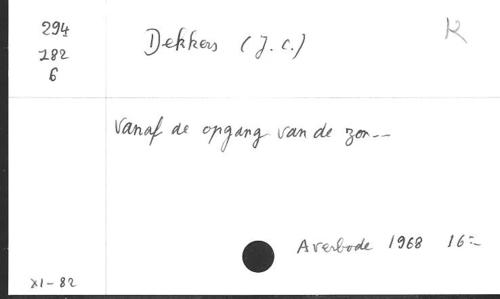 294
282
6
Dekkers (J.C.)
K
Vanaf de opgang van de zon--
Averbode 1968 16=
XI-82